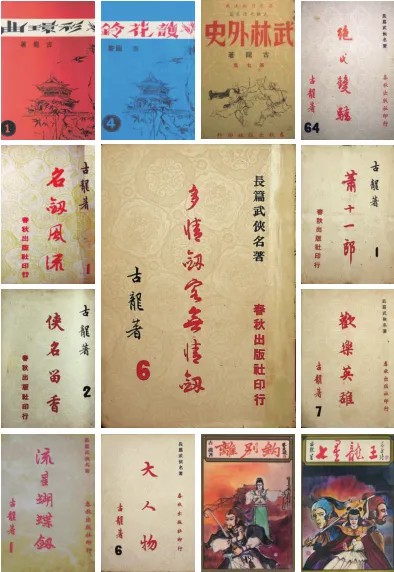 彩環曲
古龍著
1
護花鈴
古龍著
4
武林外史
古龍著
長篇武俠名著
絕代雙驕
春秋出版社印行
古龍著
64
古龍著
名劍風流
春秋出版社印行
1
長篇武俠名著
春秋出版社印行
多情劍客無情劍
古龍著
6
古龍著
1
蕭十一郎
春秋出版社印行
古龍著
2
俠名留香
春秋出版社印行
長篇武俠名著
歡樂英雄
春秋出版社印行
古龍著
7
長篇武俠名著
流星蝴蝶劍
春秋出版社印行
古龍著
1
長篇武俠名著
大人物
春秋出版社印行
古龍著
6
離別鈎
七星龍王